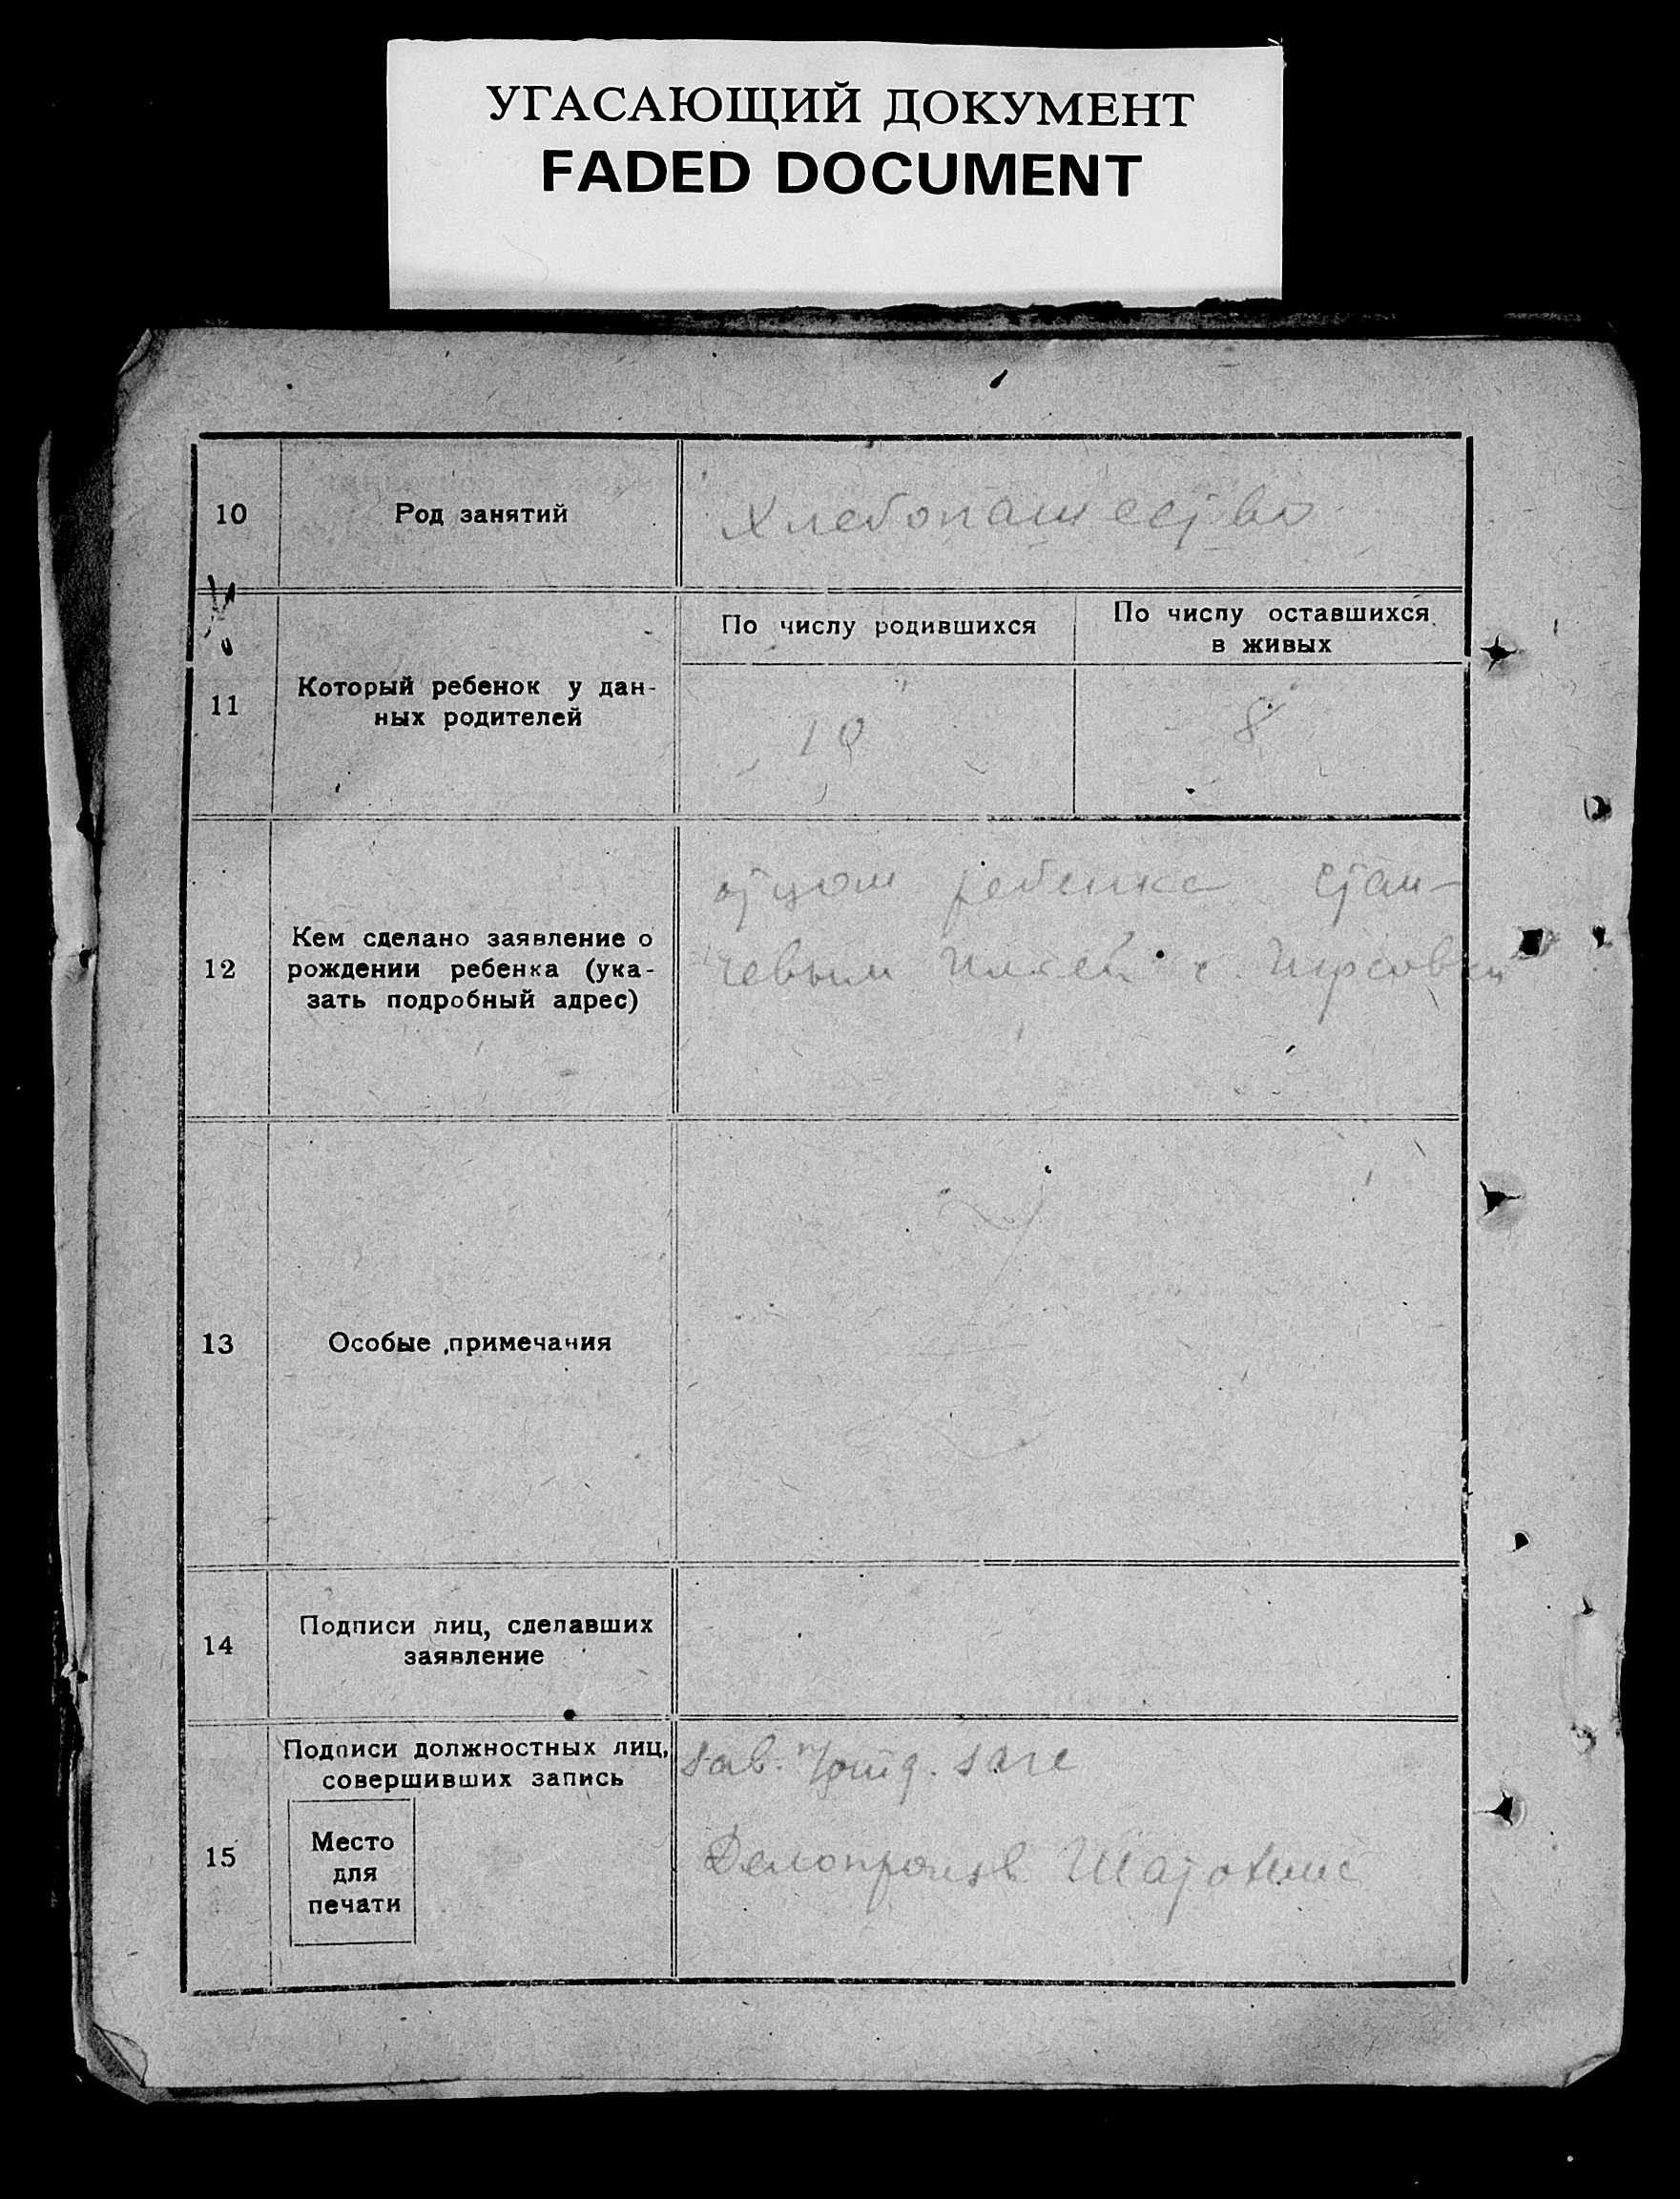 УГАСАЮЩИЙ ДОКУМЕНТ
FADED DOCUMENT
10
Род занятий
Хлебопашество
11
Который ребенок у дан-
ных родителей
По числу родившихся
По числу оставшихся
в живых
10
8
12
Кем сделано заявление о
рождении ребенка (ука-
зать подробный адрес)
отцом ребенка Стан-
чевым Ильей с.
13
Особые примечания
14
Подписи лиц, сделавших
заявление
15
Подписи должностных лиц,
совершивших запись
Место
для
печати
Зав.
Делопроизв